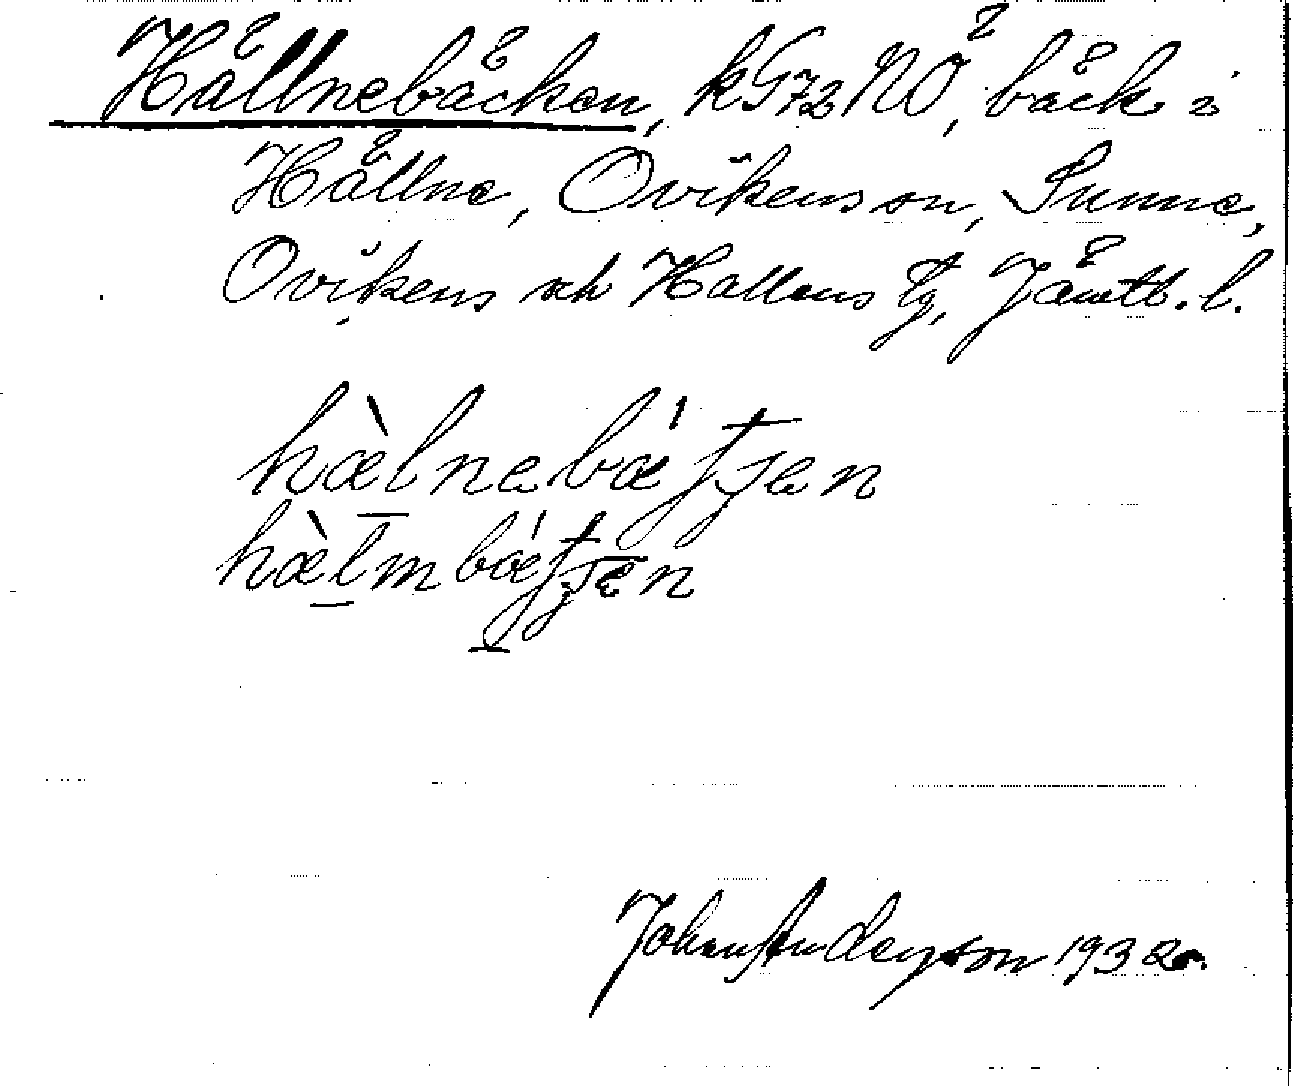 Hällnebäcken, kG72NÖ, bäck i
Hällne, Ovikens sn, Sunne,
Ovikens och Hallens tg, Jämtl. l.
hæ̀lnebǽ
hæ̀lmbǽ
Johan Anderson 1932